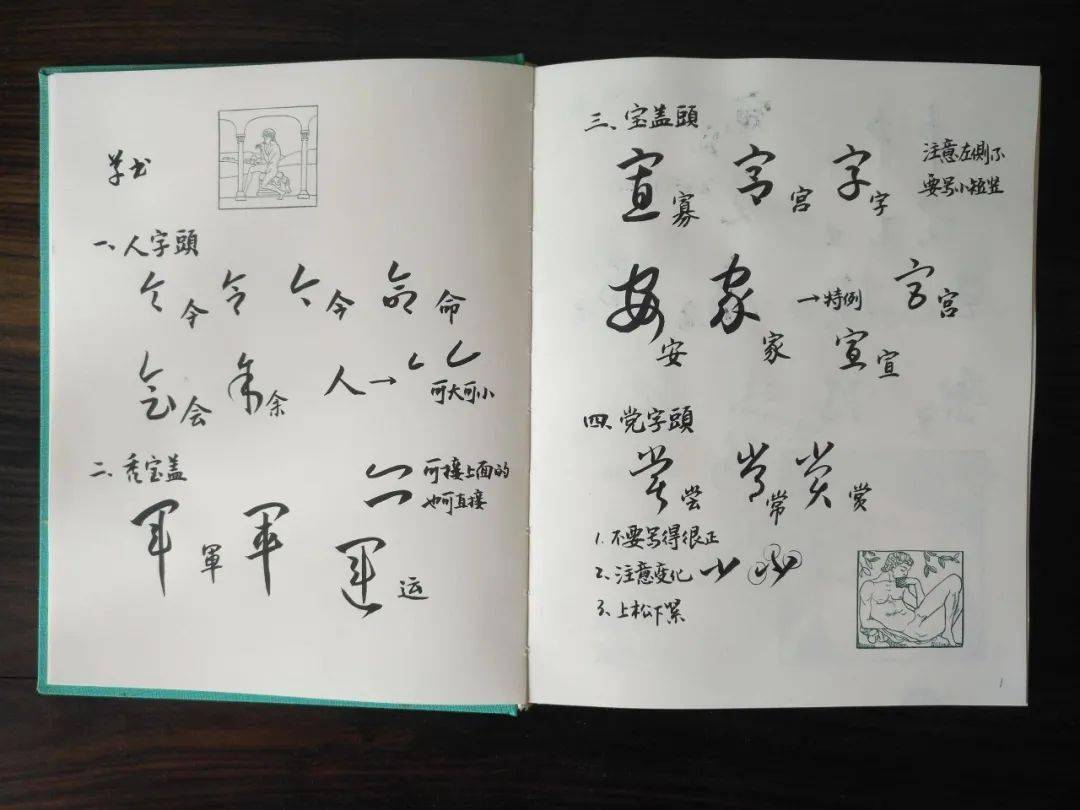 草书
一、人字頭
令 令 令 今 今 命 命
会 会 余 余 人→ 可大可小
二、秃宝盖
可接上面的
也可直接
軍 軍 軍 运 运
三、宝盖頭
注意左側
要写小短竖
寡 宫 宫 字 字
安 安 家 家 →特例 宫 宫
宣 宣
四、党字頭
尝 尝 常 常 赏 赏
1. 不要写得很正
2、注意变化
3、上松下紧
1